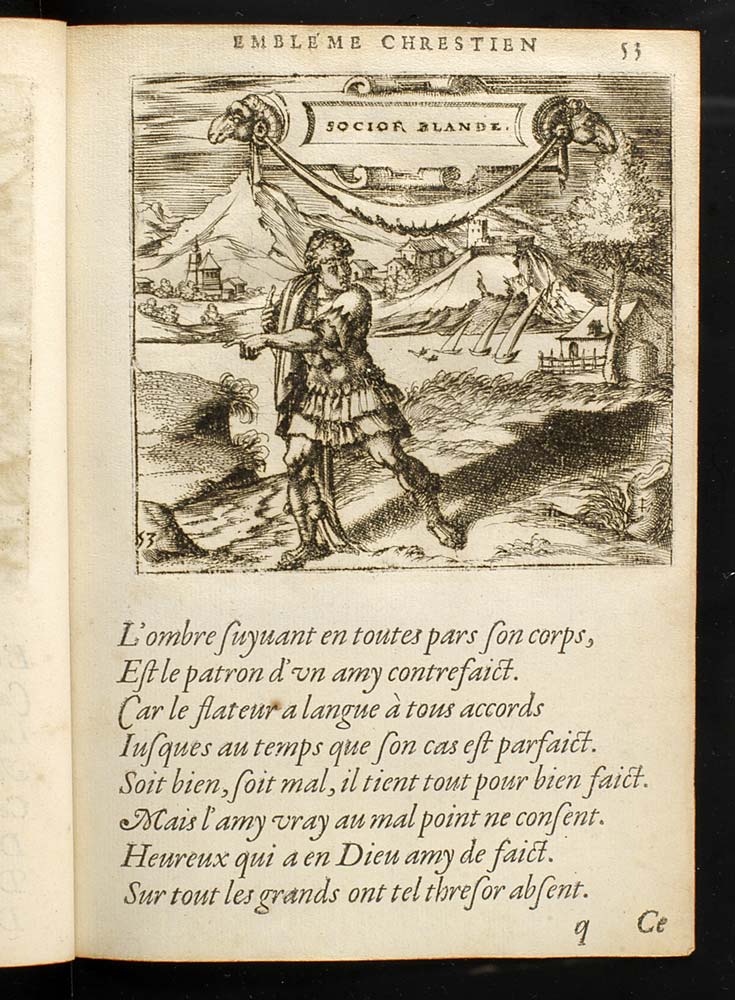 EMBLÉME CHRESTIEN 53
SOCIOR BLANDE.
53
L'ombre ſuyuant en toutes pars ſon corps,
Eſt le patron d'vn amy contrefaict.
Car le flateur a langue à tous accords
Iuſques au temps que ſon cas eſt parfaict.
Soit bien, ſoit mal, il tient tout pour bien faict.
Mais l'amy vray au mal point ne conſent.
Heureux qui a en Dieu amy de faict.
Sur tout les grands ont tel threſor abſent.
q Ce